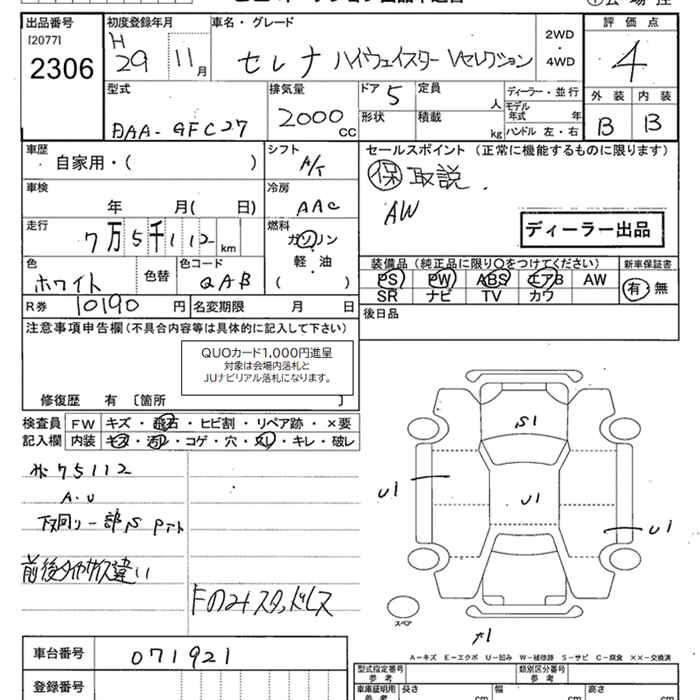 出品番号 初度登録年月 車名・グレード 評価点
[2077] H
2306 29 11月 セレナ ハイウェイスター Vセレクション 2WD・4WD 4
型式 排気量 ドア 5 定員 人 ディーラー・並行 外装 内装
DAA-GFC27 2000cc 形状 積載 kg モデル年式 年 ハンドル 左・右 B B
車歴 シフト セールスポイント (正常に機能するものに限ります)
自家用・( ) A/T 保 取説.
車検 冷房 AW
年 月( 日) AAC ディーラー出品
走行 燃料
7万5千112km ガソリン
軽・油
( )
装備品 (純正品に限り○をつけてください) 新車保証書
色 色替 色コード PS PW ABS エアB AW 有・無
ホワイト QAB SR ナビ TV カワ
R券 10190円 名変期限 月 日 後日品
注意事項申告欄(不具合内容等は具体的に記入して下さい)
QUOカード1,000円進呈
対象は会場内落札と
JUナビリアル落札になります。
修復歴 有 〔箇所 〕
検査員 FW キズ・飛石・ヒビ割・リペア跡・×要
記入欄 内装 キズ・汚レ・コゲ・穴・スレ・キレ・破レ
75112
A.U
下回り一部S
前後タイヤサイズ違い
FのみスタッドレS
S1
U1
U1
U1
A1
スペア
A-キズ E-エクボ U-凹み W-補修跡 S-サビ C-腐食 ××-交換済
車台番号 071921 型式指定番号 参考 類別区分番号 参考
登録番号 車庫証明用 参考 長さ cm 幅 cm 高さ cm